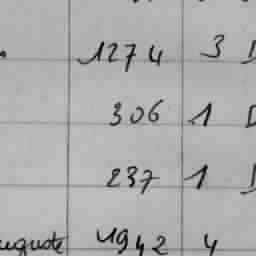 1274 3 D
306 1 D
237 1 D
1942 4